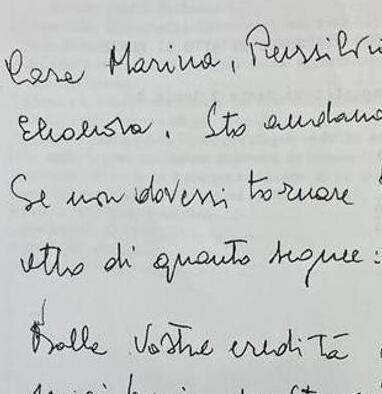 Care Marina, Piersilvi
Eleonora. Sto andand
Se non dovessi tornare
atto di quanto segue:
Dalla vostra eredità